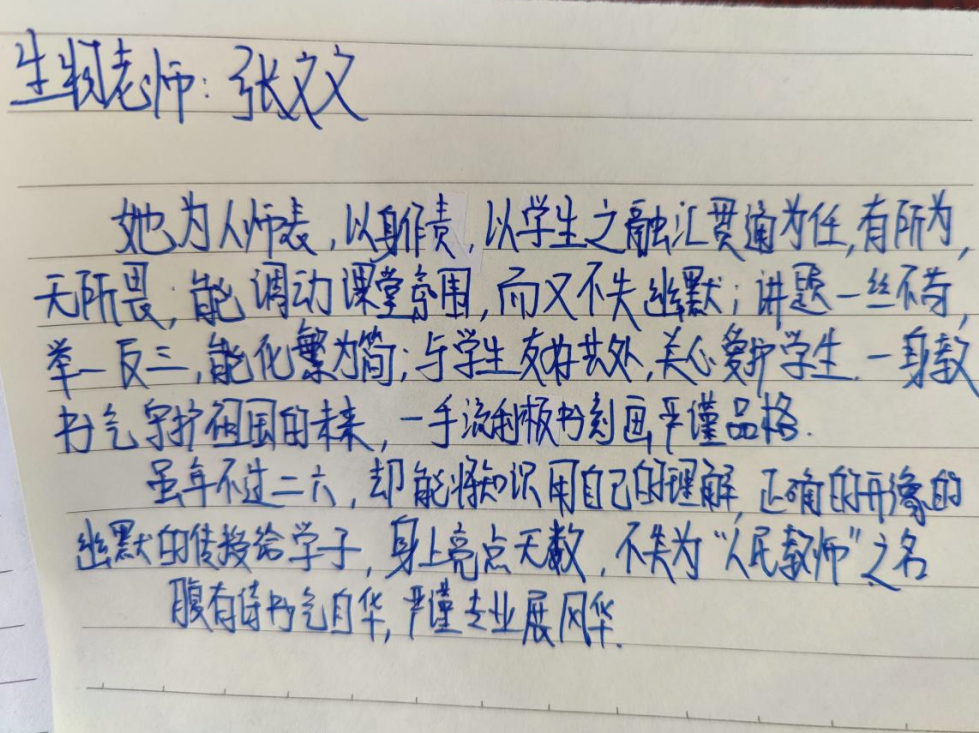 生物老师：张文文
她为人师表，以身作责，以学生之融汇贯通为任，有所为，
无所畏；能调动课堂氛围，而又不失幽默；讲题一丝不苟，
举一反三，能化繁为简；与学生友好共处，关心爱护学生．一身教
书气守护祖国的未来，一手流利板书刻画严谨品格．
虽年不过二六，却能将知识用自己的理解，正确的形像的
幽默的传授给学子，身上亮点无数，不失为“人民教师”之名
腹有诗书气自华，严谨专业展风华．